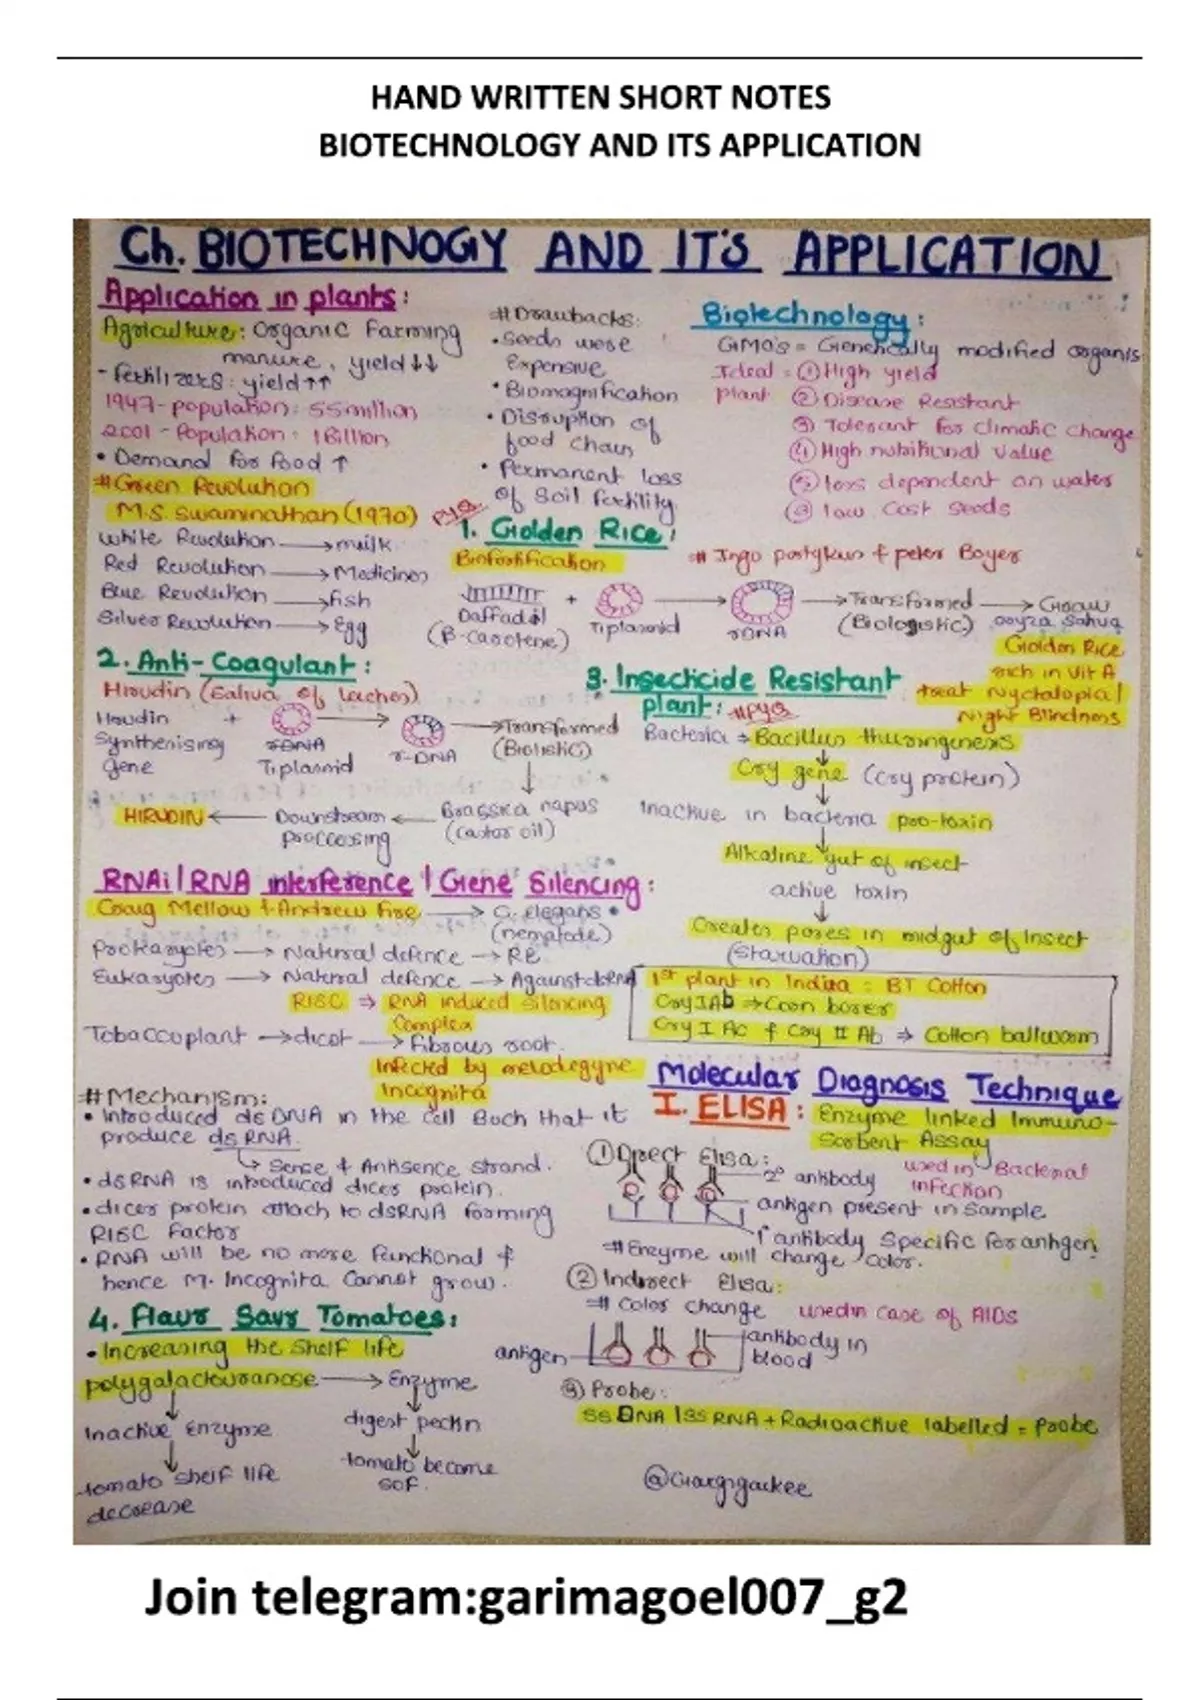 HAND WRITTEN SHORT NOTES
BIOTECHNOLOGY AND ITS APPLICATION
Ch. BIOTECHNOGY AND IT'S APPLICATION
Application in plants:
Agriculture: Organic Farming
manure, yield ↓↓
- Fertilizers: yield ↑↑
1947- population: 55 million
2001 - Population: 1 Billion
• Demand for food ↑
# Green Revolution
M.S. Swaminathan (1970)
White Revolution → milk
Red Revolution → Medicines
Blue Revolution → fish
Silver Revolution → Egg
# Drawbacks:
• Seeds were
Expensive
• Biomagnification
• Disruption of
food chain
• Permanent loss
of Soil fertility
Biotechnology:
GMO's = Genetically modified organis
Ideal = ① High yield
plant ② Disease Resistant
③ Tolerant for climatic change
④ High nutritional value
⑤ less dependent on water
low cost seeds
PYQ
1. Golden Rice:
Biofortification
# Ingo portykus & peter Boyer
Daffadil + Tiplasmid → rDNA → Transformed → Grow
(β-carotene) (Biologistic) oryza sativa
Golden Rice
rich in vit A
treat Nyctalopia/
Night Blindness
2. Anti-Coagulant:
Hirudin (Saliva of leaches)
Hirudin + rDNA → r-DNA → Transformed
Synthenising Tiplasmid (Biolistic)
gene
HIRUDIN ← Downstream ← Brassika napus
proccessing (castor oil)
3. Insecticide Resistant
plant: #PYQ
Bacteria ⇒ Bacillus thuringenesis
↓
Cry gene (cry protein)
↓
Inactive in bacteria pro-toxin
↓
Alkaline gut of insect
active toxin
↓
Creates pores in midgut of Insect
(Starvation)
1st plant in India : BT Cotton
Cry IAb ⇒ Coon borer
Cry I Ac & Cry II Ab ⇒ Cotton ballworm
RNAi/RNA interference/Gene Silencing:
Craig Mellow & Andrew fire → C. elegans
(nematode)
Prokaryotes → Natural defence → RE
Eukaryotes → Natural defence → Against dsRNA
RISC ⇒ RNA induced silencing
Complex
Tobacco plant → dicot → fibrous root.
Infected by melodegyne
Incognita
# Mechanism:
• Introduced ds DNA in the cell such that it
produce ds RNA.
↳ Sense & Antisence strand.
• dsRNA is introduced dicer protein.
• dicer protein attach to dsRNA forming
RISC Factor
• RNA will be no more functional &
hence M. Incognita Cannot grow.
4. Flavr Savr Tomatoes:
• Increasing the shelf life
polygalactouranose → Enzyme
↓
Inactive enzyme
↓
tomato shelf life
decrease
digest pectin
↓
tomato become
sof.
Molecular Diagnosis Technique
I. ELISA: Enzyme linked Immuno-
Sorbent Assay
① Direct Elisa:
used in Bacterial
infection
2° antibody
antigen present in sample
1° antibody specific for antigen
# Enzyme will change color.
② Indirect Elisa:
# color change used in case of AIDS
antigen
antibody in
blood
③ Probe:
SS DNA/SS RNA + Radioactive labelled = Probe
Join telegram:garimagoel007_g2